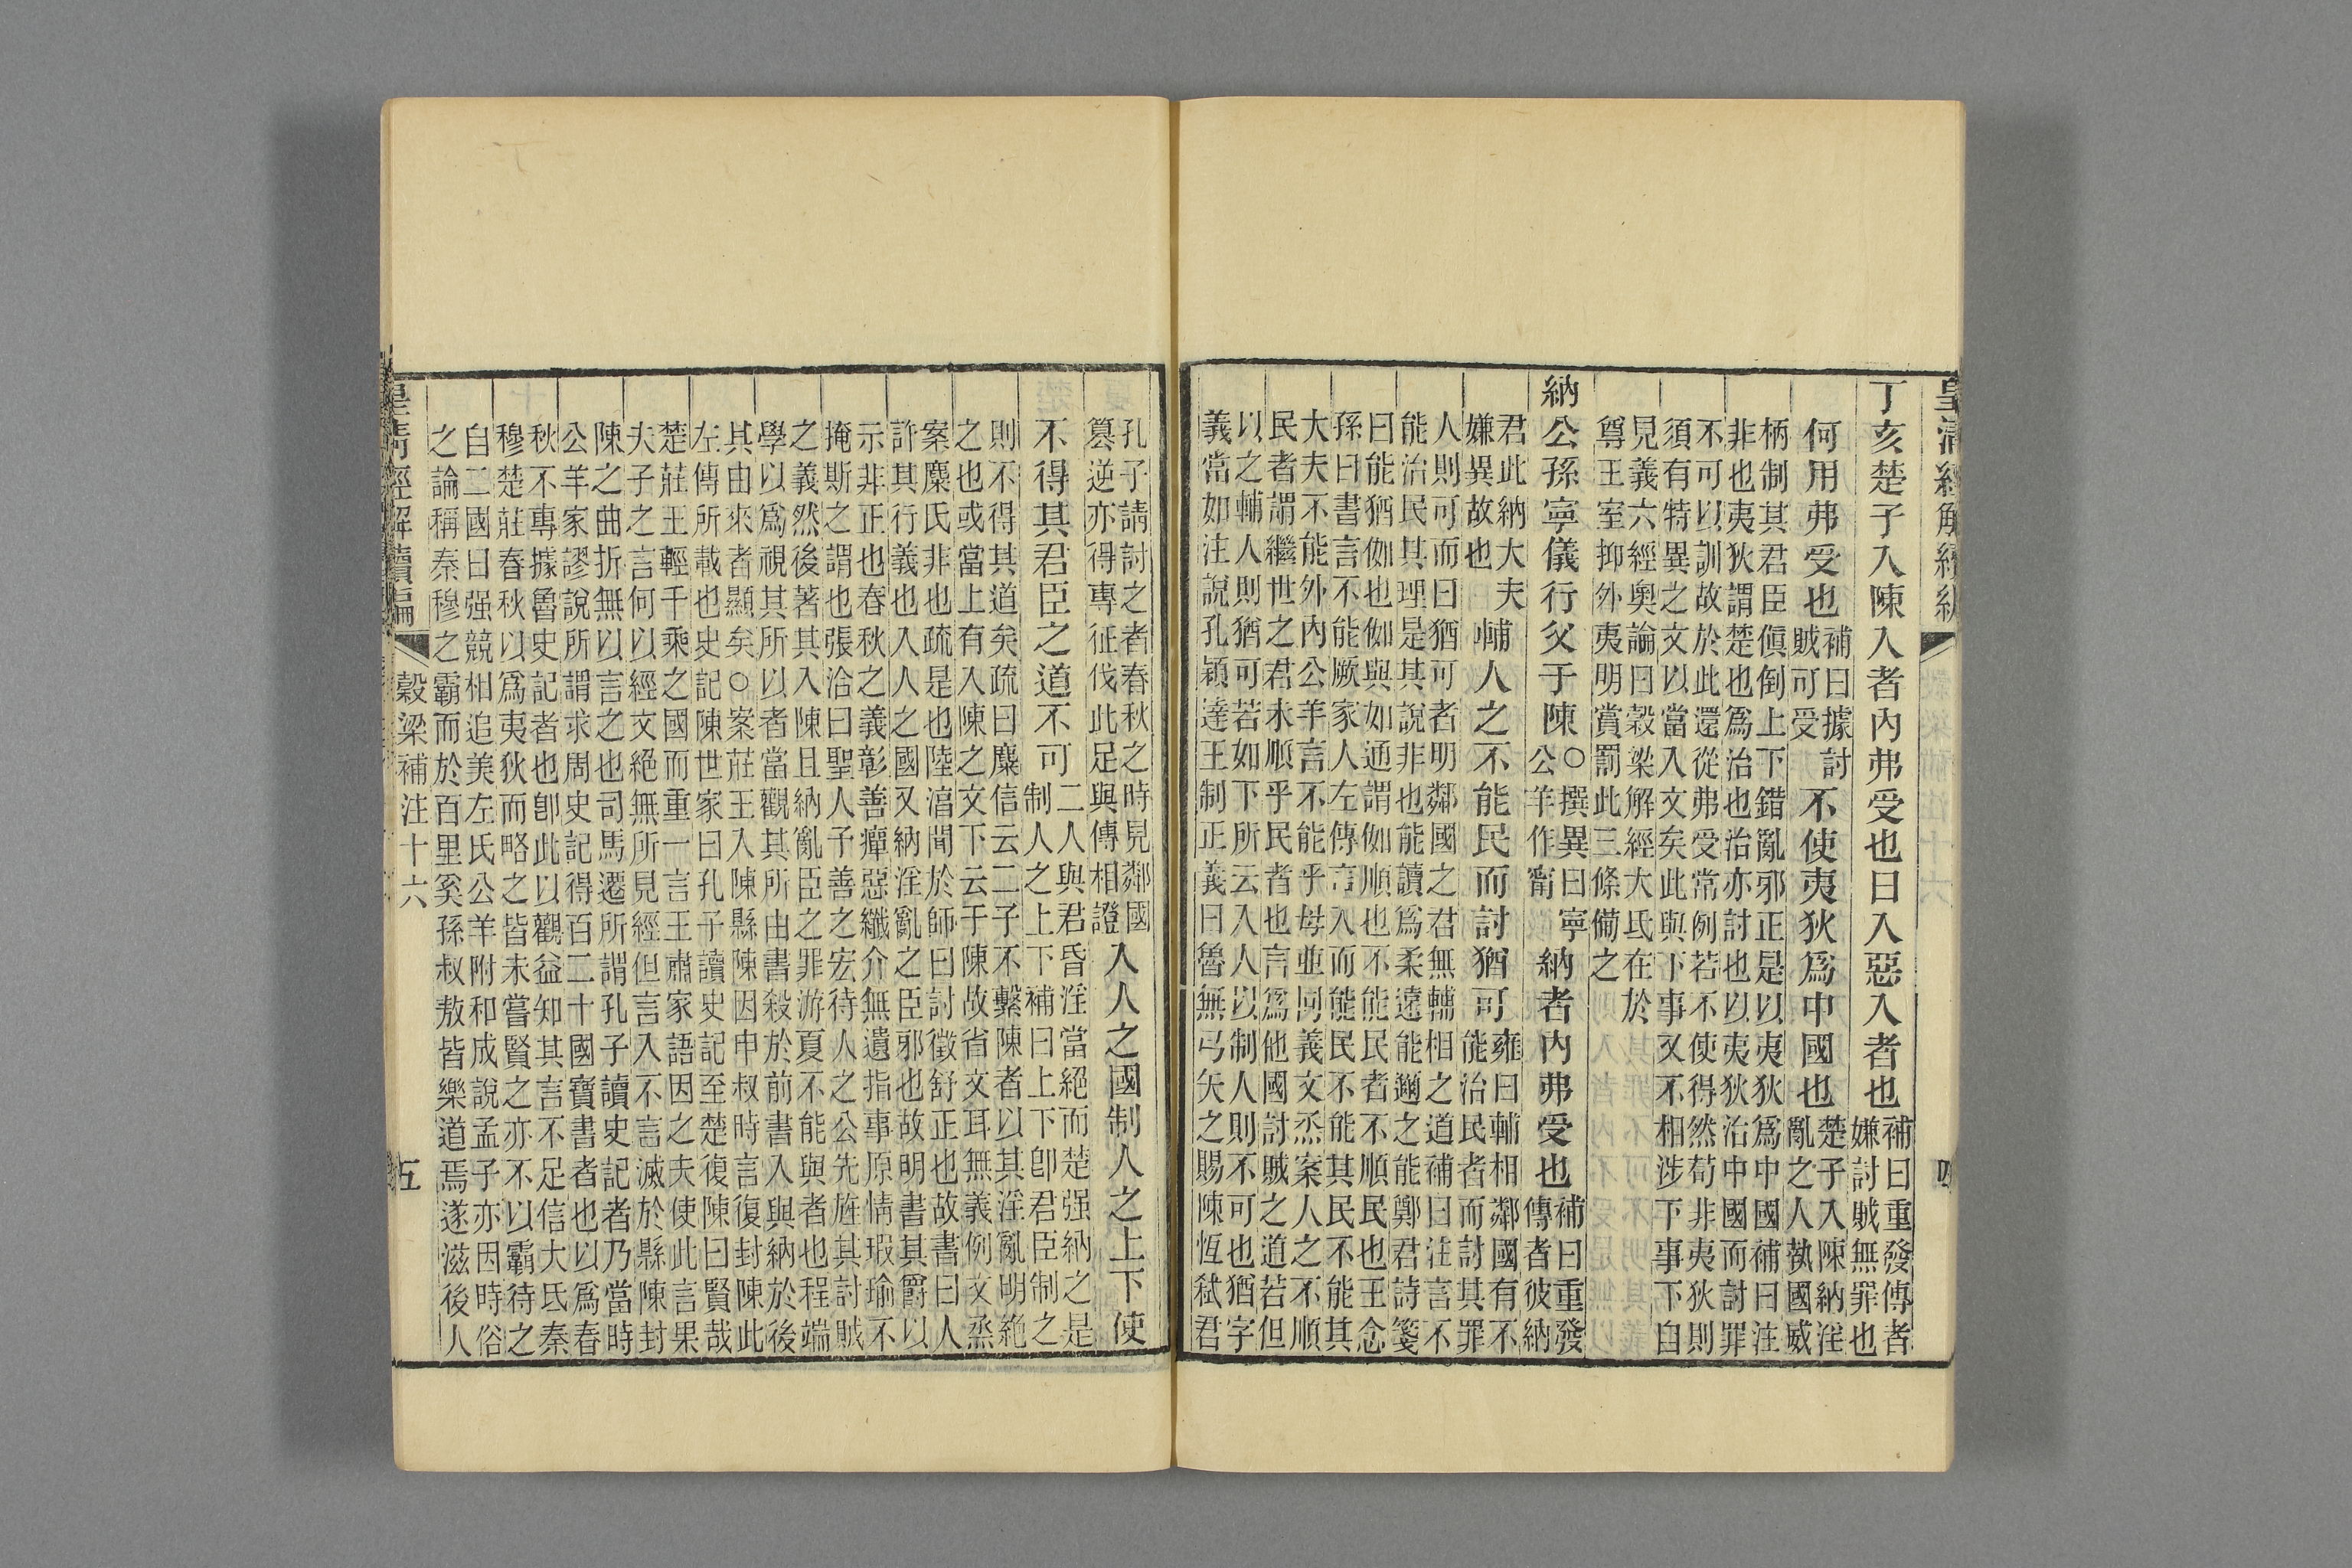 皇清經解續編
丁亥楚子入陳入者內弗受也日入惡入者也補曰重發傳者
嫌討賊無罪也
何用弗受也補曰據討
賊可受不使夷狄爲中國也楚子入陳納淫
亂之人執國威
柄制其君臣傎倒上下錯亂邪正是以夷狄爲中國補曰注
非也夷狄謂楚也爲治也治亦討也以夷狄治中國而討罪
不可以訓故於此還從弗受常例若不使得然苟非夷狄則
須有特異之文以當入文矣此與下事又不相涉下事下自
見義六經奧論曰穀梁解經大氐在於
尊王室抑外夷明賞罰此三條備之
納公孫寧儀行父于陳○撰異曰寧
公羊作甯納者內弗受也補曰重發
傳者彼納
君此納大夫
嫌異故也輔人之不能民而討猶可雍曰輔相鄰國有不
能治民者而討其罪
人則可而曰猶可者明鄰國之君無輔相之道補曰注言不
能治民其理是其說非也能讀爲柔遠能邇之能鄭君詩箋
曰能猶伽也伽與如通謂伽順也不能民者不順民也王念
孫曰書言不能厥家人左傳言入而能民不能其民不能其
大夫不能外內公羊言不能乎母並同義文烝案人之不順
民者謂繼世之君未順乎民者也言爲他國討賊之道若但
以之輔人則猶可若如下所云入人以制人則不可也猶字
義當如注說孔穎達王制正義曰魯無弓矢之賜陳恆弒君
孔子請討之者春秋之時見鄰國
篡逆亦得專征伐此足與傳相證入人之國制人之上下使
不得其君臣之道不可二人與君昏淫當絕而楚强納之是
制人之上下補曰上下卽君臣制之
則不得其道矣疏曰麋信云二子不繫陳者以其淫亂明絕
之也或當上有入陳之文下云于陳故省文耳無義例文烝
案麋氏非也疏是也陸淳聞於師曰討徵舒正也故書曰人
許其行義也入人之國又納淫亂之臣邪也故明書其爵以
示非正也春秋之義彰善癉惡纖介無遺指事原情瑕瑜不
掩斯之謂也張洽曰聖人予善之宏待人之公先旌其討賊
之義然後著其入陳且納亂臣之罪游夏不能與者也程端
學以爲視其所以者當觀其所由書殺於前書入與納於後
其由來者顯矣○案莊王入陳縣陳因申叔時言復封陳此
左傳所載也史記陳世家曰孔子讀史記至楚復陳曰賢哉
楚莊王輕千乘之國而重一言王肅家語因之夫使此言果
夫子之言何以經文絕無所見經但言入不言滅於縣陳封
陳之曲折無以言之也司馬遷所謂孔子讀史記者乃當時
公羊家謬說所謂求周史記得百二十國寶書者也以爲春
秋不專據魯史記者也卽此以觀益知其言不足信大氐秦
穆楚莊春秋以爲夷狄而略之皆未嘗賢之亦不以霸待之
自二國曰强競相追美左氏公羊附和成說孟子亦因時俗
之論稱秦穆之霸而於百里奚孫叔敖皆樂道焉遂滋後人
皇清經解續編 穀梁補注十六 五